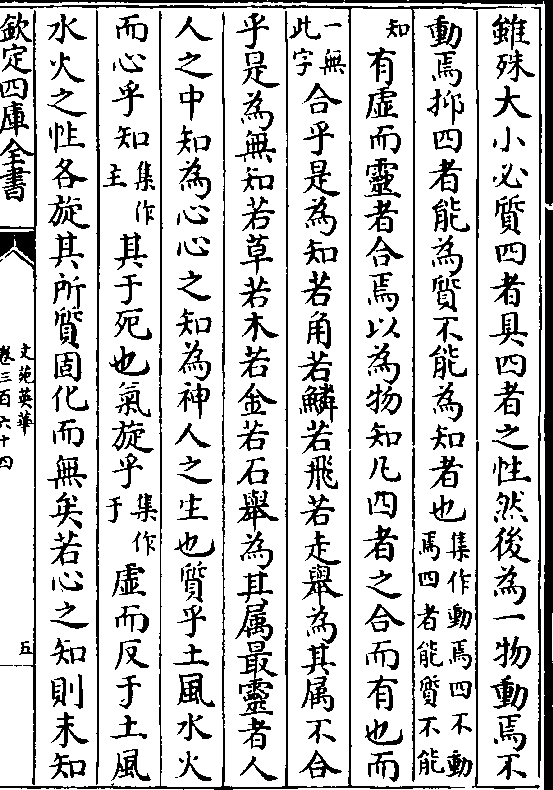 雖殊大小必質四者具四者之性然後為一物動焉不
動焉抑四者能為質不能為知者也集作動焉四不動焉四者能質不能
知有虛而靈者合焉以為物知凡四者之合而有也而
一無此字合乎是為知若角若鱗若飛若走舉為其属不合
乎是為無知若草若木若金若石舉為其属最靈者人
人之中知為心心之知為神人之生也質乎土風水火
而心乎知集作主其于死也氣旋乎集作于虛而反于土風
水火之性各旋其所質固化而無矣若心之知則未知
欽定四庫全書
文苑英華
卷三百六十四
五